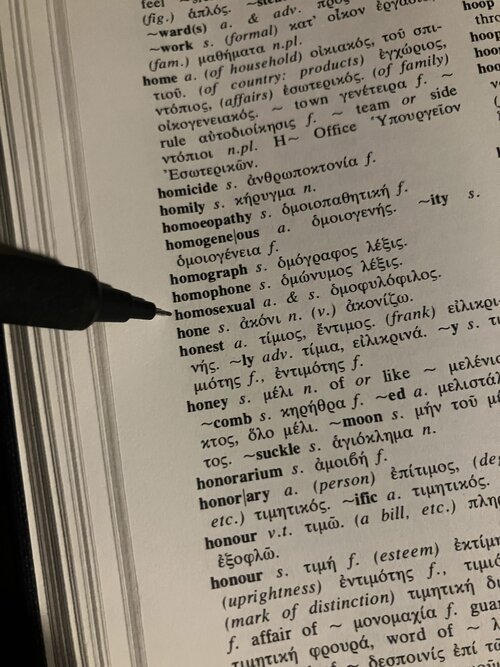 feel
(fig.) ἁπλός.
~ward(s) a. & adv. πρὸς
~work s. (formal) κατ' οἶκον ἐργασία
(fam.) μαθήματα n.pl.
home a. (of household) οἰκιακός, τοῦ σπι-
τιοῦ. (of country: products) ἐγχώριος,
ντόπιος, (affairs) ἐσωτερικός. (of family)
οἰκογενειακός. ~ town γενέτειρα f. ~
rule αὐτοδιοίκησις f. ~ team or side
ντόπιοι n.pl. H~ Office Ὑπουργεῖον
Ἐσωτερικῶν.
homicide s. ἀνθρωποκτονία f.
homily s. κήρυγμα n.
homoeopathy s. ὁμοιοπαθητική f.
homogene|ous a. ὁμοιογενής. ~ity s.
ὁμοιογένεια f.
homograph s. ὁμόγραφος λέξις.
homophone s. ὁμώνυμος λέξις.
homosexual a. & s. ὁμοφυλόφιλος.
hone s. ἀκόνι n. (v.) ἀκονίζω.
honest a. τίμιος, ἔντιμος. (frank) εἰλικρι-
νής. ~ly adv. τίμια, εἰλικρινά. ~y s. τι-
μιότης f., ἐντιμότης f.
honey s. μέλι n. of or like ~ μελένιος
~comb s. κηρήθρα f. ~ed a. μελιστάλ
κτος, ὅλο μέλι. ~moon s. μὴν τοῦ μέ
τος. ~suckle s. ἁγιόκλημα n.
honorarium s. ἀμοιβή f.
honor|ary a. (person) ἐπίτιμος, (deg
etc.) τιμητικός. ~ific a. τιμητικός.
honour v.t. τιμῶ. (a bill, etc.) πλη
ἐξοφλῶ.
honour s. τιμή f. (esteem) ἐκτίμη
(uprightness) ἐντιμότης f., τιμιό
(mark of distinction) τιμητική δι
f. affair of ~ μονομαχία f. gua
τιμητική φρουρά, word of ~ λ
f. ~ δεσποινὶς ἐπὶ
hoop
thro
hoop
hoo